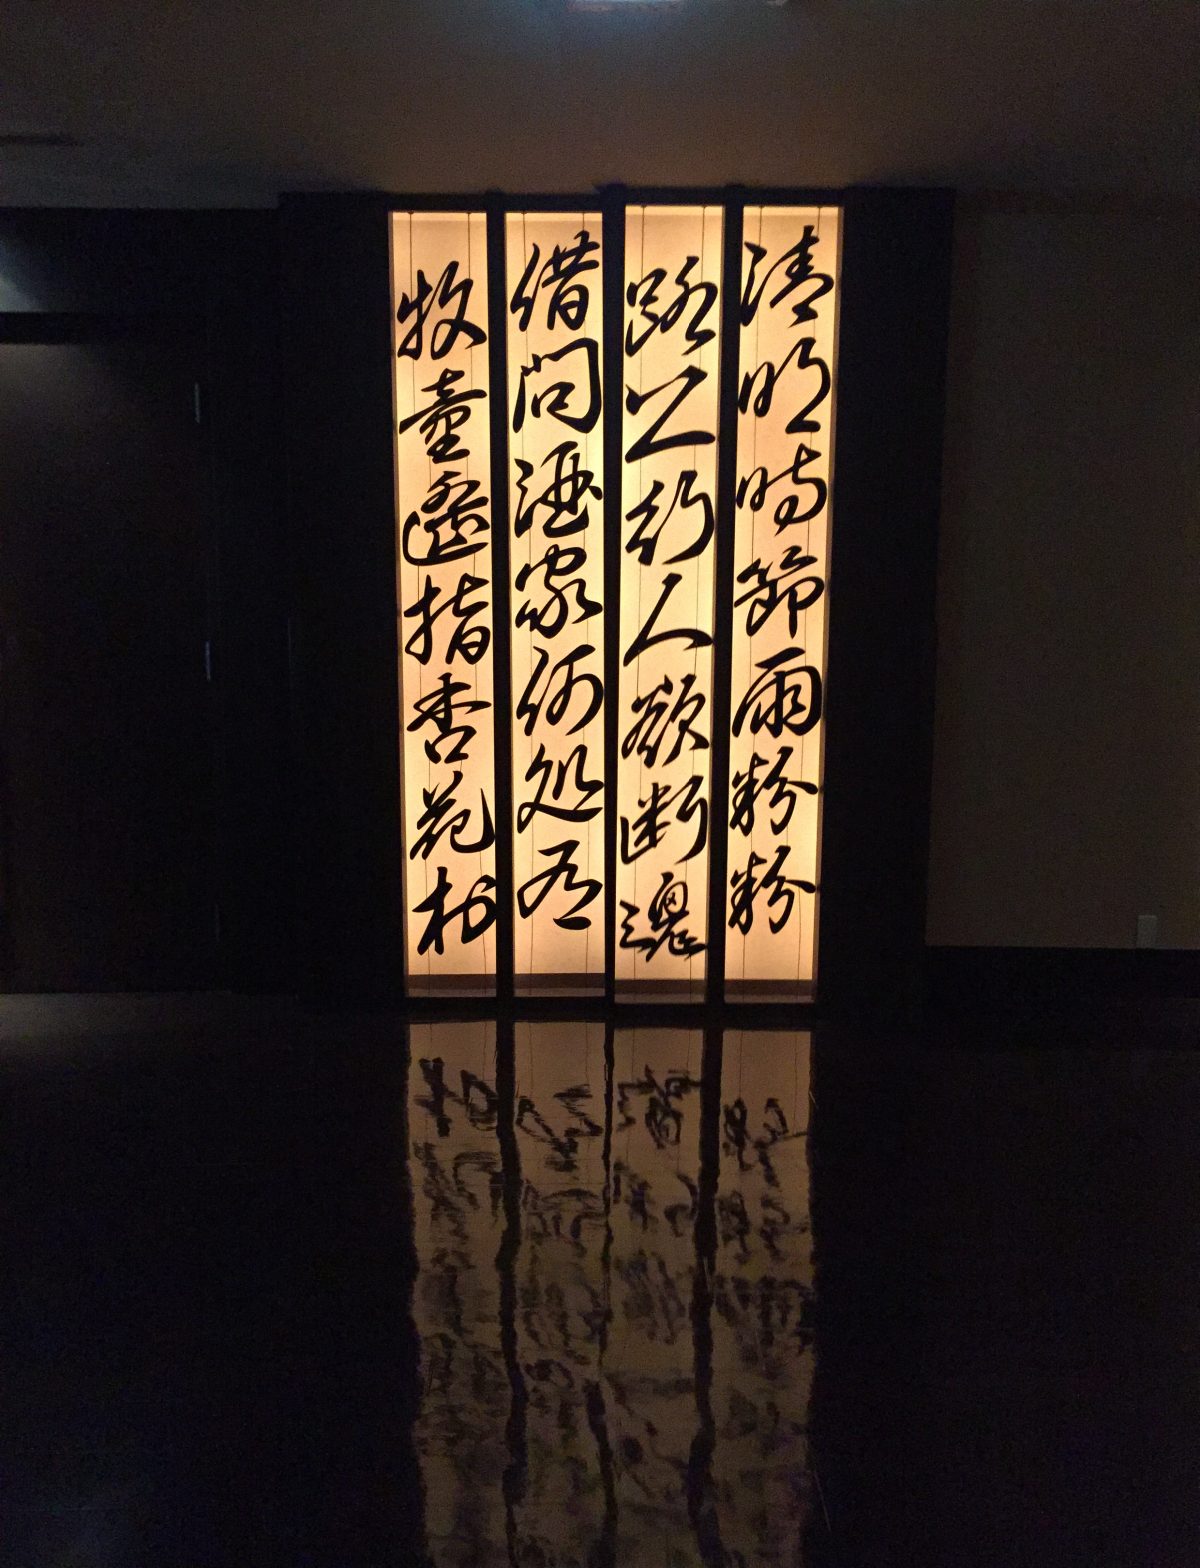 清明時節雨粉粉
路上行人欲断魂
借問酒家何処有
牧童遥指杏花村